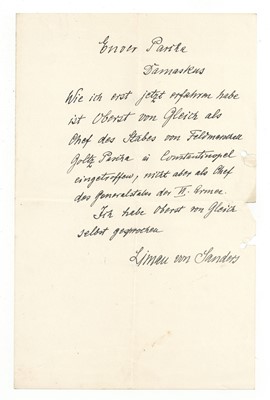 Enver Pascha
Damaskus
Wie ich erst jetzt erfahren habe
ist Oberst von Gleich als
Chef des Stabes von Feldmarschall
Goltz Pascha in Constantinopel
eingetroffen, nicht aber als Chef
des Generalstabes der II. Armee.
Ich habe Oberst von Gleich
selbst gesprochen
Liman von Sanders